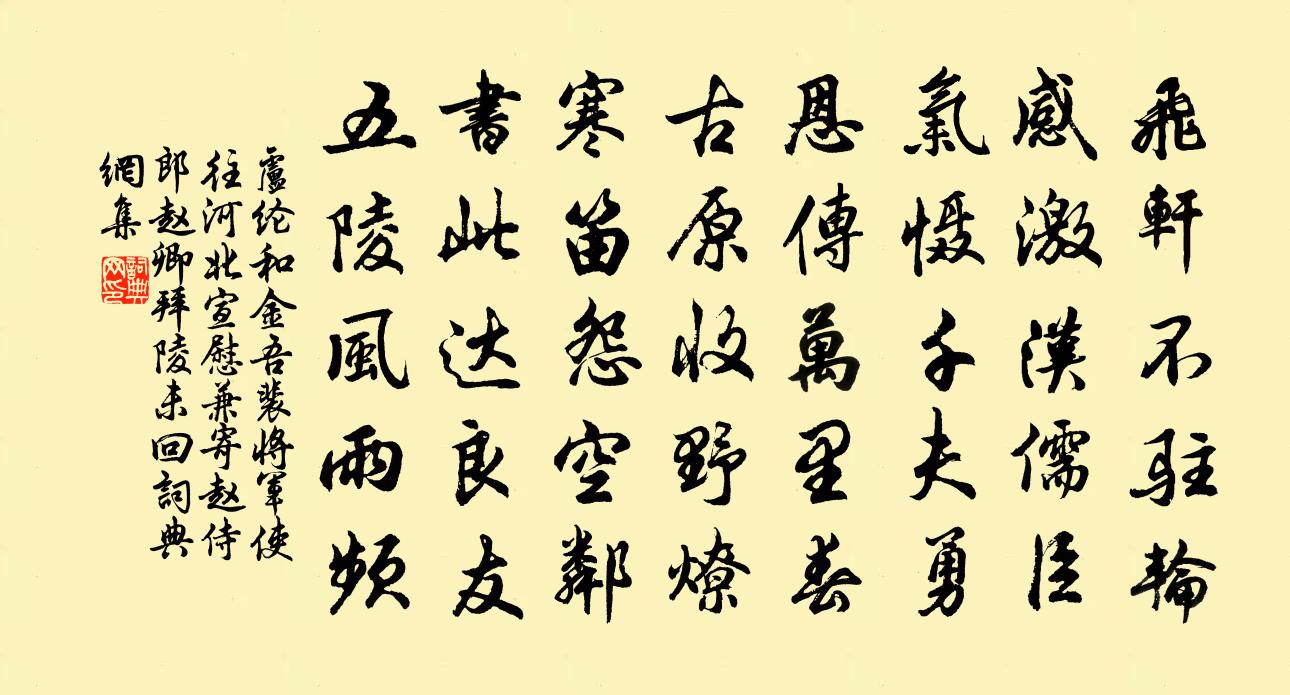 飛軒不駐輪
感激漢儒臣
氣慑千夫勇
恩傳萬里春
古原收野燎
寒笛怨空鄰
書此达良友
五陵風雨頻
盧纶和金吾裴將軍使
往河北宣慰兼寄赵侍
郎赵卿拜陵未回詞典
網集
詞典網印